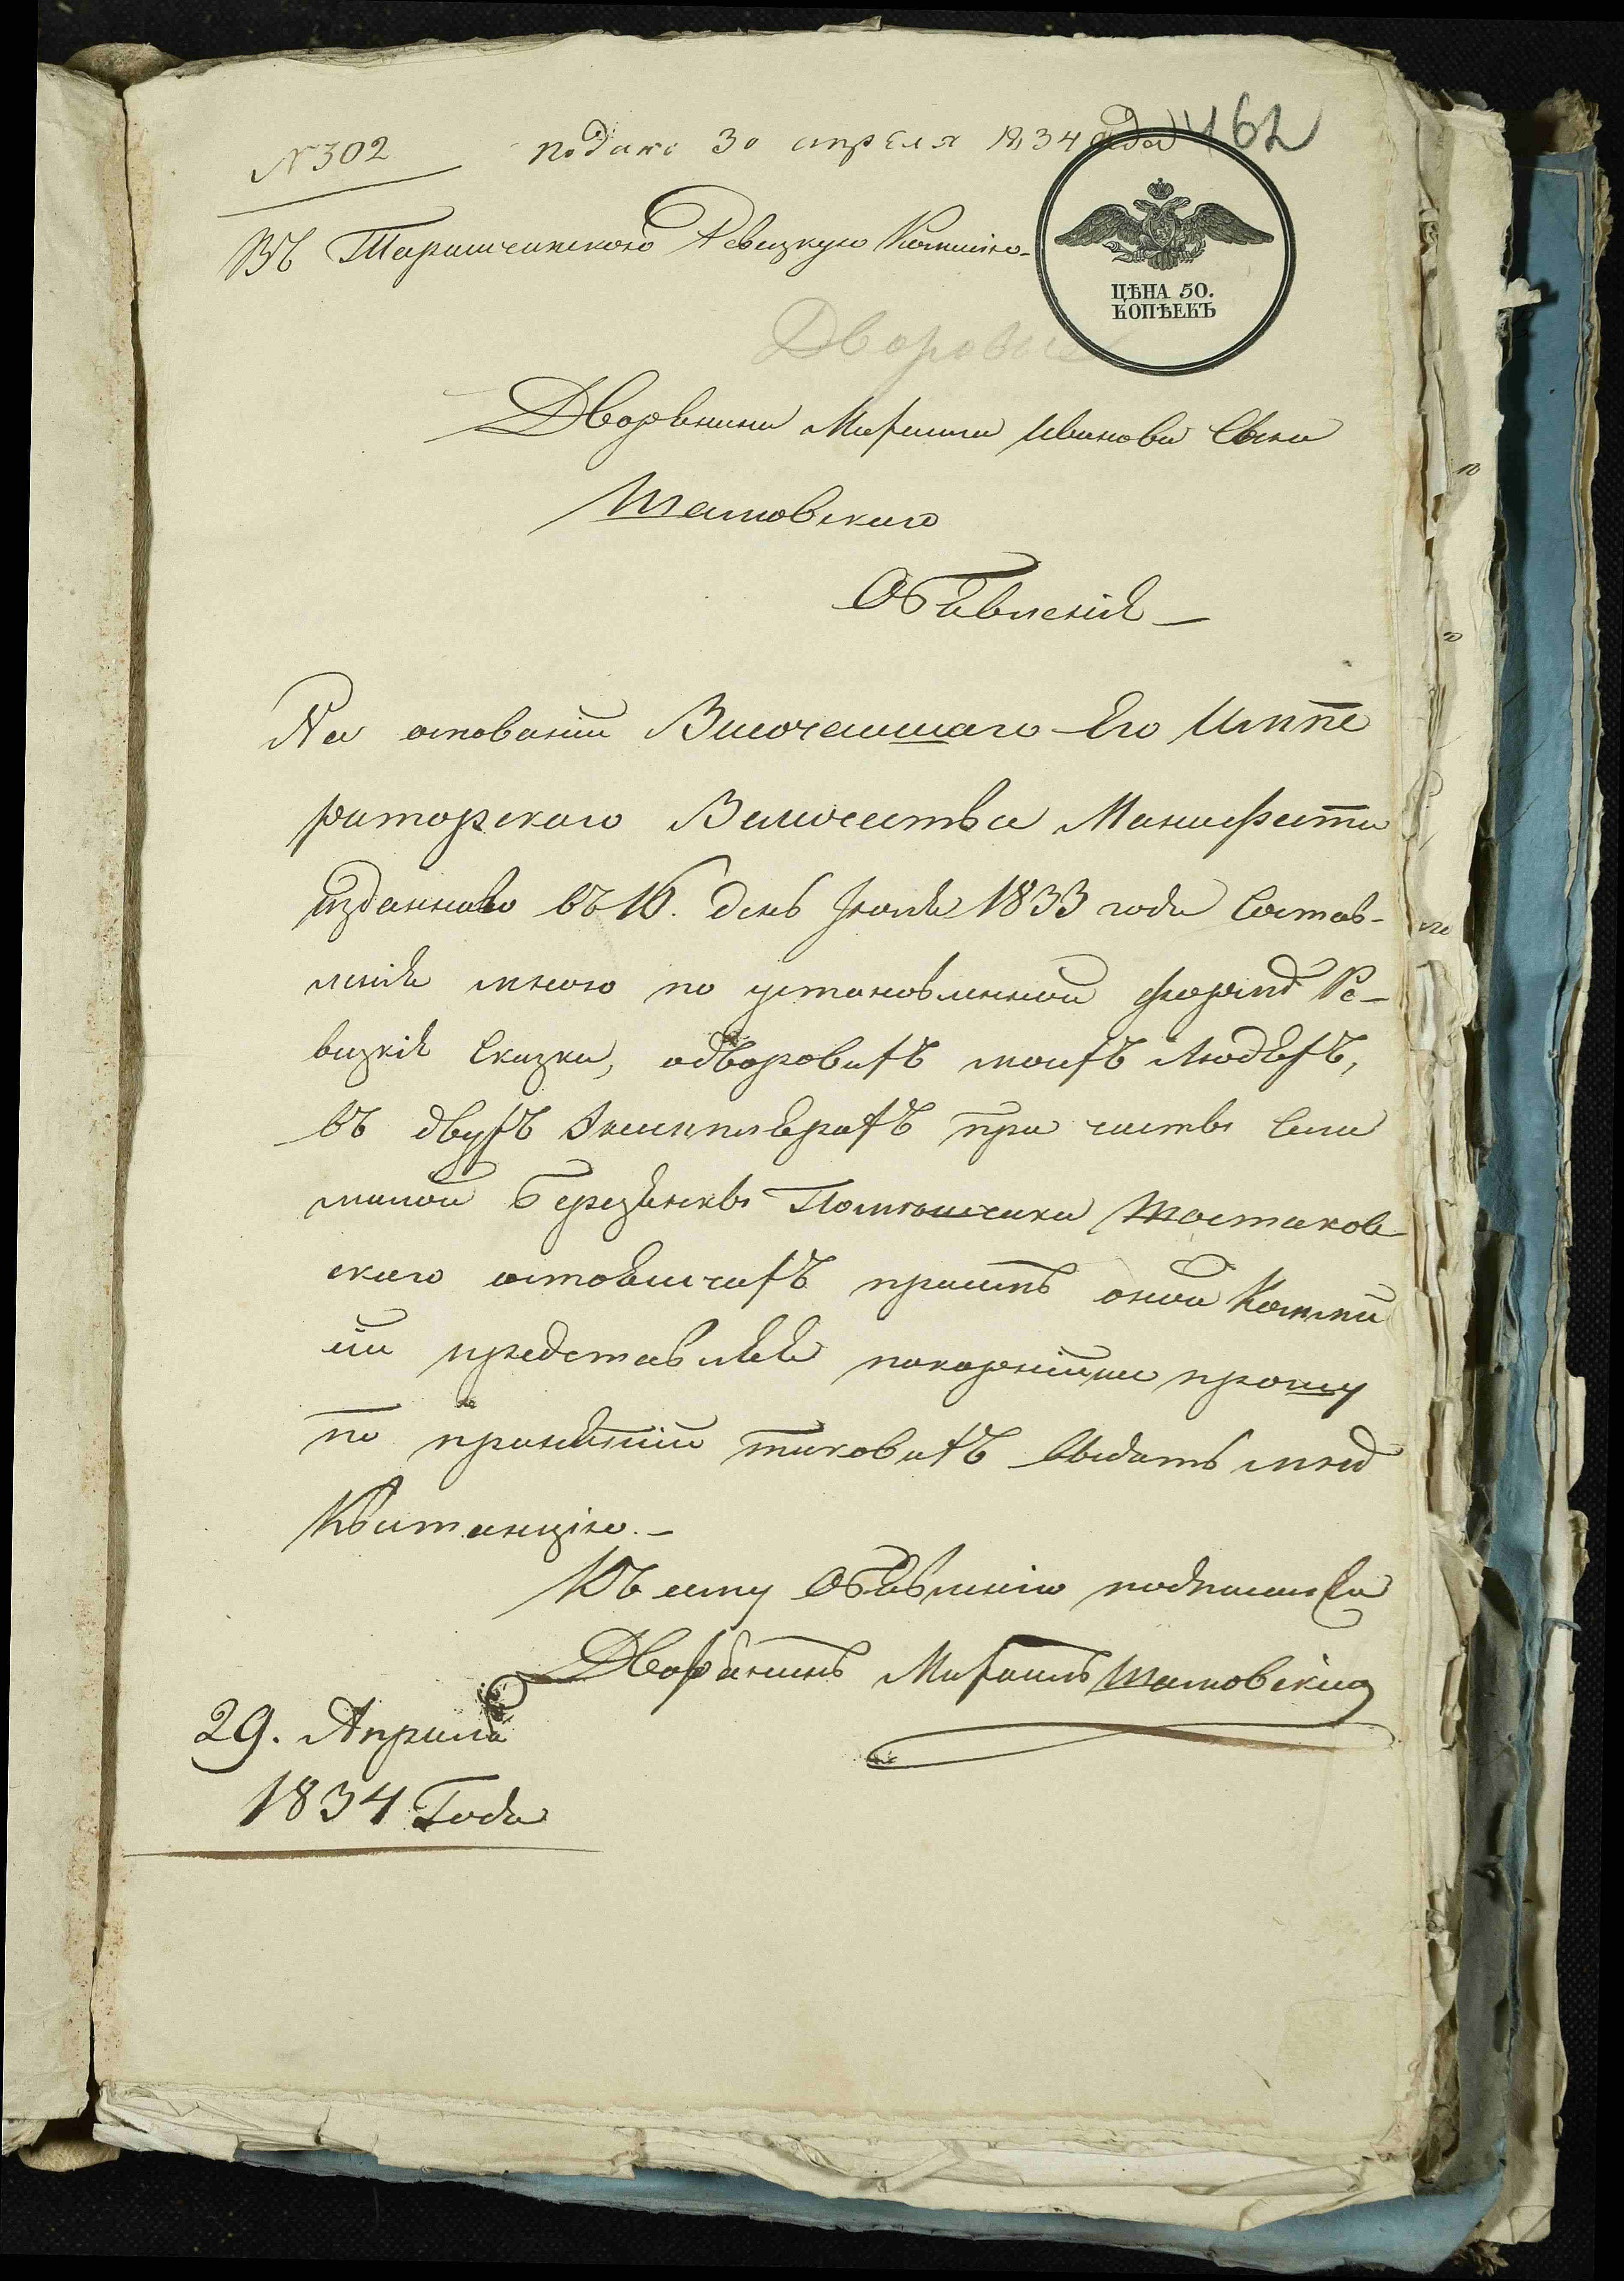 № 302
подано 30 апреля 1834 года
462
Въ Таращанскою Ревизкую Комисию
ЦѢНА 50.
КОПѢЕКЪ
Дворовые
Дворянина Михаила Иванова Сына
Шатовскаго
Объявленія
На основаніи Височаишаго Его Импе
раторскаго Величества Манифеста
изданнаво въ 16. день Іюня 1833 года Состав-
ленія мною по установленной формѣ Ре-
визкія Сказки, о дворовихъ моихъ Людяхъ,
въ двухъ Экземплярахъ при части Села
малой Березянки Помѣщика
скаго состоящихъ при симъ оной Комми
іи представляя покорнѣише прошу
по принятіи таковихъ выдать мнѣ
Квитанцію.-
Къ сему Объявленію подписался
Дворянинъ Михаилъ Шатовскій
29. Апреля
1834 Года